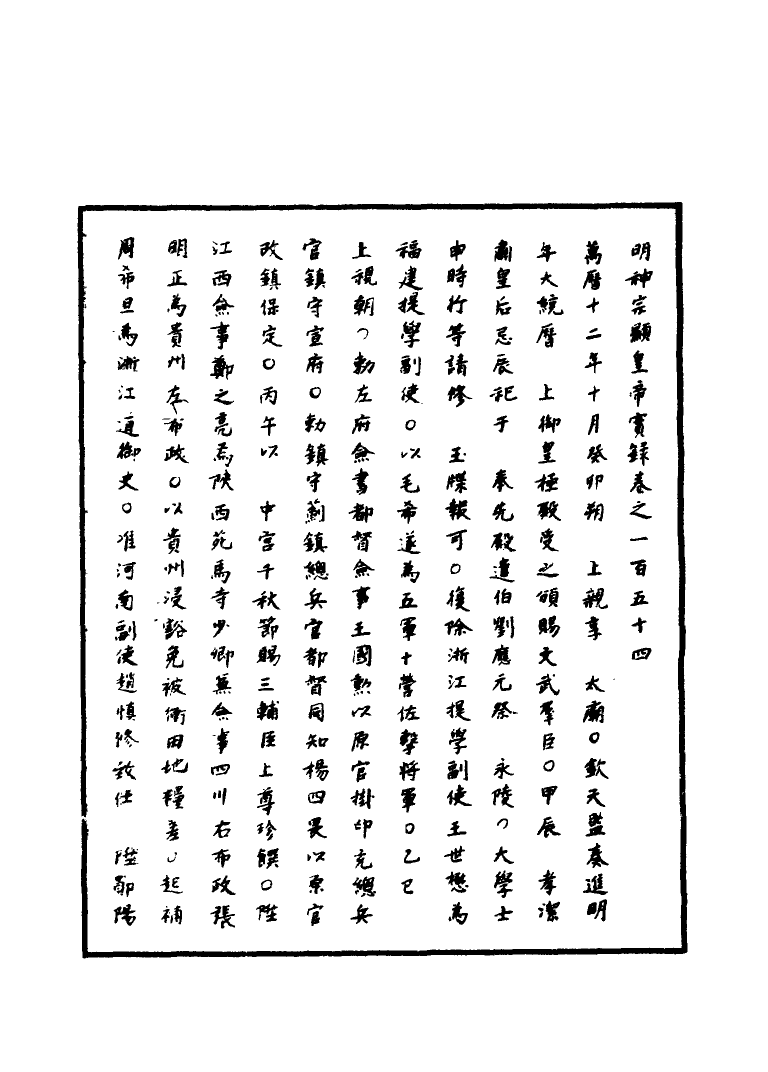 明神宗顯皇帝實録卷之一百五十四
萬曆十二年十月癸卯朔　上親享　太廟○欽天監奏進明
年大統曆　上御皇極殿受之頒賜文武羣臣○甲辰　孝潔
肅皇后忌辰祀于　奉先殿遣伯劉應元祭　永陵○大學士
申時行等請修　玉牒報可○復除浙江提學副使王世懋為
福建提學副使○以毛希遂為五軍十營佐擊將軍○乙巳
上視朝○勅左府僉書都督僉事王國勲以原官掛印充總兵
官鎮守宣府○勅鎮守薊鎮總兵官都督同知楊四畏以原官
改鎮保定○丙午以　中宮千秋節賜三輔臣上尊珍饌○陞
江西僉事鄭之亮為陝西苑馬寺少卿兼僉事四川右布政張
明正為貴州左布政○以貴州浸豁免被衝田地糧差○起補
周希旦為浙江道御史○准河南副使趙慎修致仕　陞鄖陽